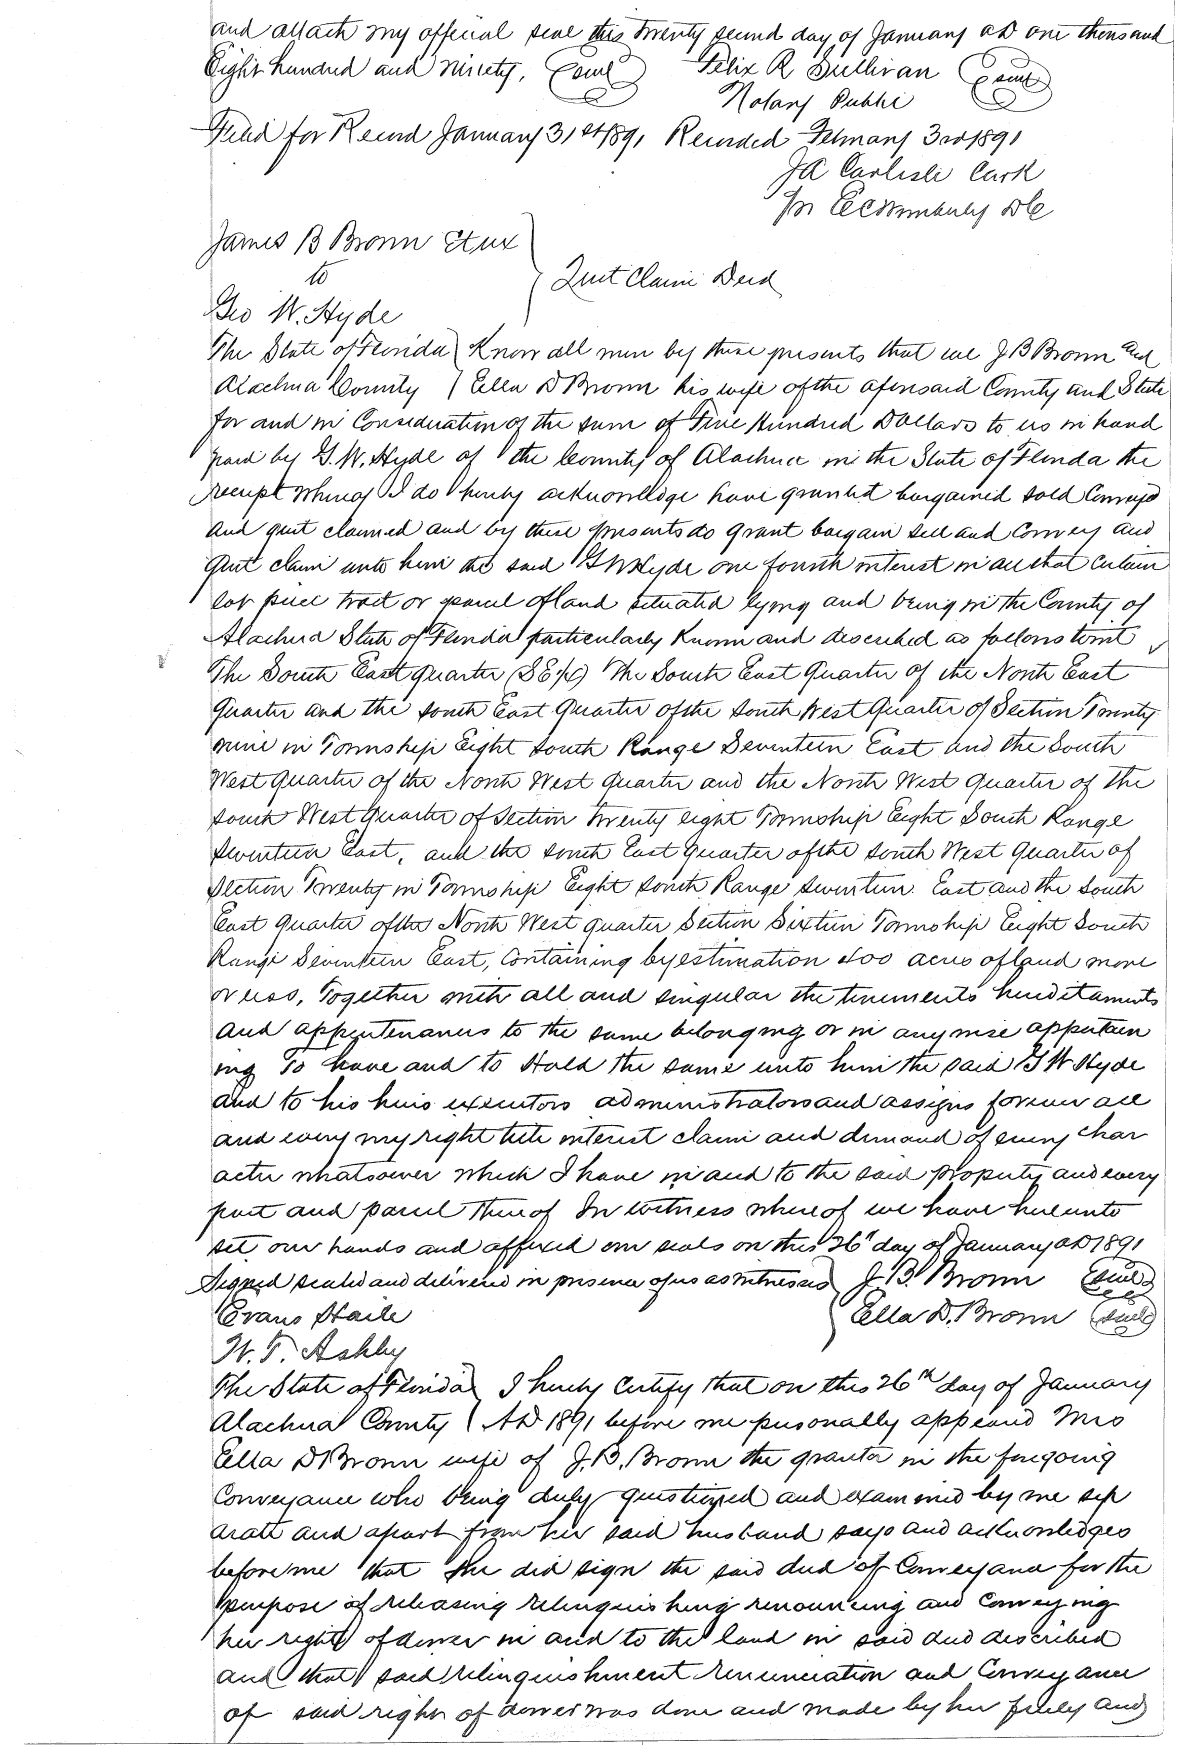 and attach my official seal this twenty second day of January AD one thousand
Eight hundred and ninety, (seal) Felix R Sullivan (seal)
Notary Public
Filed for Record January 31st 1891 Recorded February 3rd 1891
JA Carlisle Clerk
Pr DC
James B Brown Et ux
to
Quit Claim Deed
Geo W. Hyde
The State of Florida } Know all men by these presents that we J B Brown and
Alachua County } Ella D Brown his wife of the aforesaid County and State
for and in Consideration of the sum of Five Hundred Dollars to us in hand
paid by G. W. Hyde of the County of Alachua in the State of Florida the
receipt whereof I do hereby acknowledge have granted bargained sold Conveyed
and quit claimed and by these presents do grant bargain sell and Convey and
Quit claim unto him the said G W Hyde one fourth interest in all that certain
lot piece tract or parcel of land situated lying and being in the County of
Alachua State of Florida particularly Known and described as follows towit
The South East quarter (SE¼) The South East Quarter of the North East
Quarter and the South East Quarter of the South West Quarter of Section Twenty
nine in Township Eight South Range Seventeen East and the South
West Quarter of the North West Quarter and the North West Quarter of the
South West Quarter of Section Twenty eight Township Eight South Range
Seventeen East, and the South East Quarter of the South West Quarter of
Section Twenty in Township Eight South Range Seventeen East and the South
East Quarter of the North West quarter Section Sixteen Township Eight South
Range Seventeen East, Containing by estimation 400 acres of land more
or less, Together with all and singular the tenements hereditaments
and appurtenances to the same belonging or in any wise appertain
ing To have and to Hold the same unto him the said G W Hyde
and to his heirs executors administrators and assigns forever all
and every my right title interest claim and demand of every Char
acter whatsoever which I have in and to the said property and every
part and parcel thereof In witness whereof we have hereunto
set our hands and affixed our seals on this 26th day of January AD 1891
Signed sealed and delivered in presence of us as witnesses } J. B. Brown (seal)
Evans Haile } Ella D. Brown (seal)
W. T. Ashby
The State of Florida } I hereby Certify that on this 26th day of January
Alachua County } AD 1891 before me personally appeard Mrs
Ella D Brown wife of J. B. Brown the grantor in the foregoing
Conveyance who being duly questioned and examined by me sep
arate and apart from her said husband says and acknowledges
before me that she did sign the said deed of Conveyance for the
purpose of releasing relinquishing renouncing and Conveying
her right of dower in and to the land in said deed described
and that said relinquishment renunciation and Conveyance
of said right of dower was done and made by her freely and